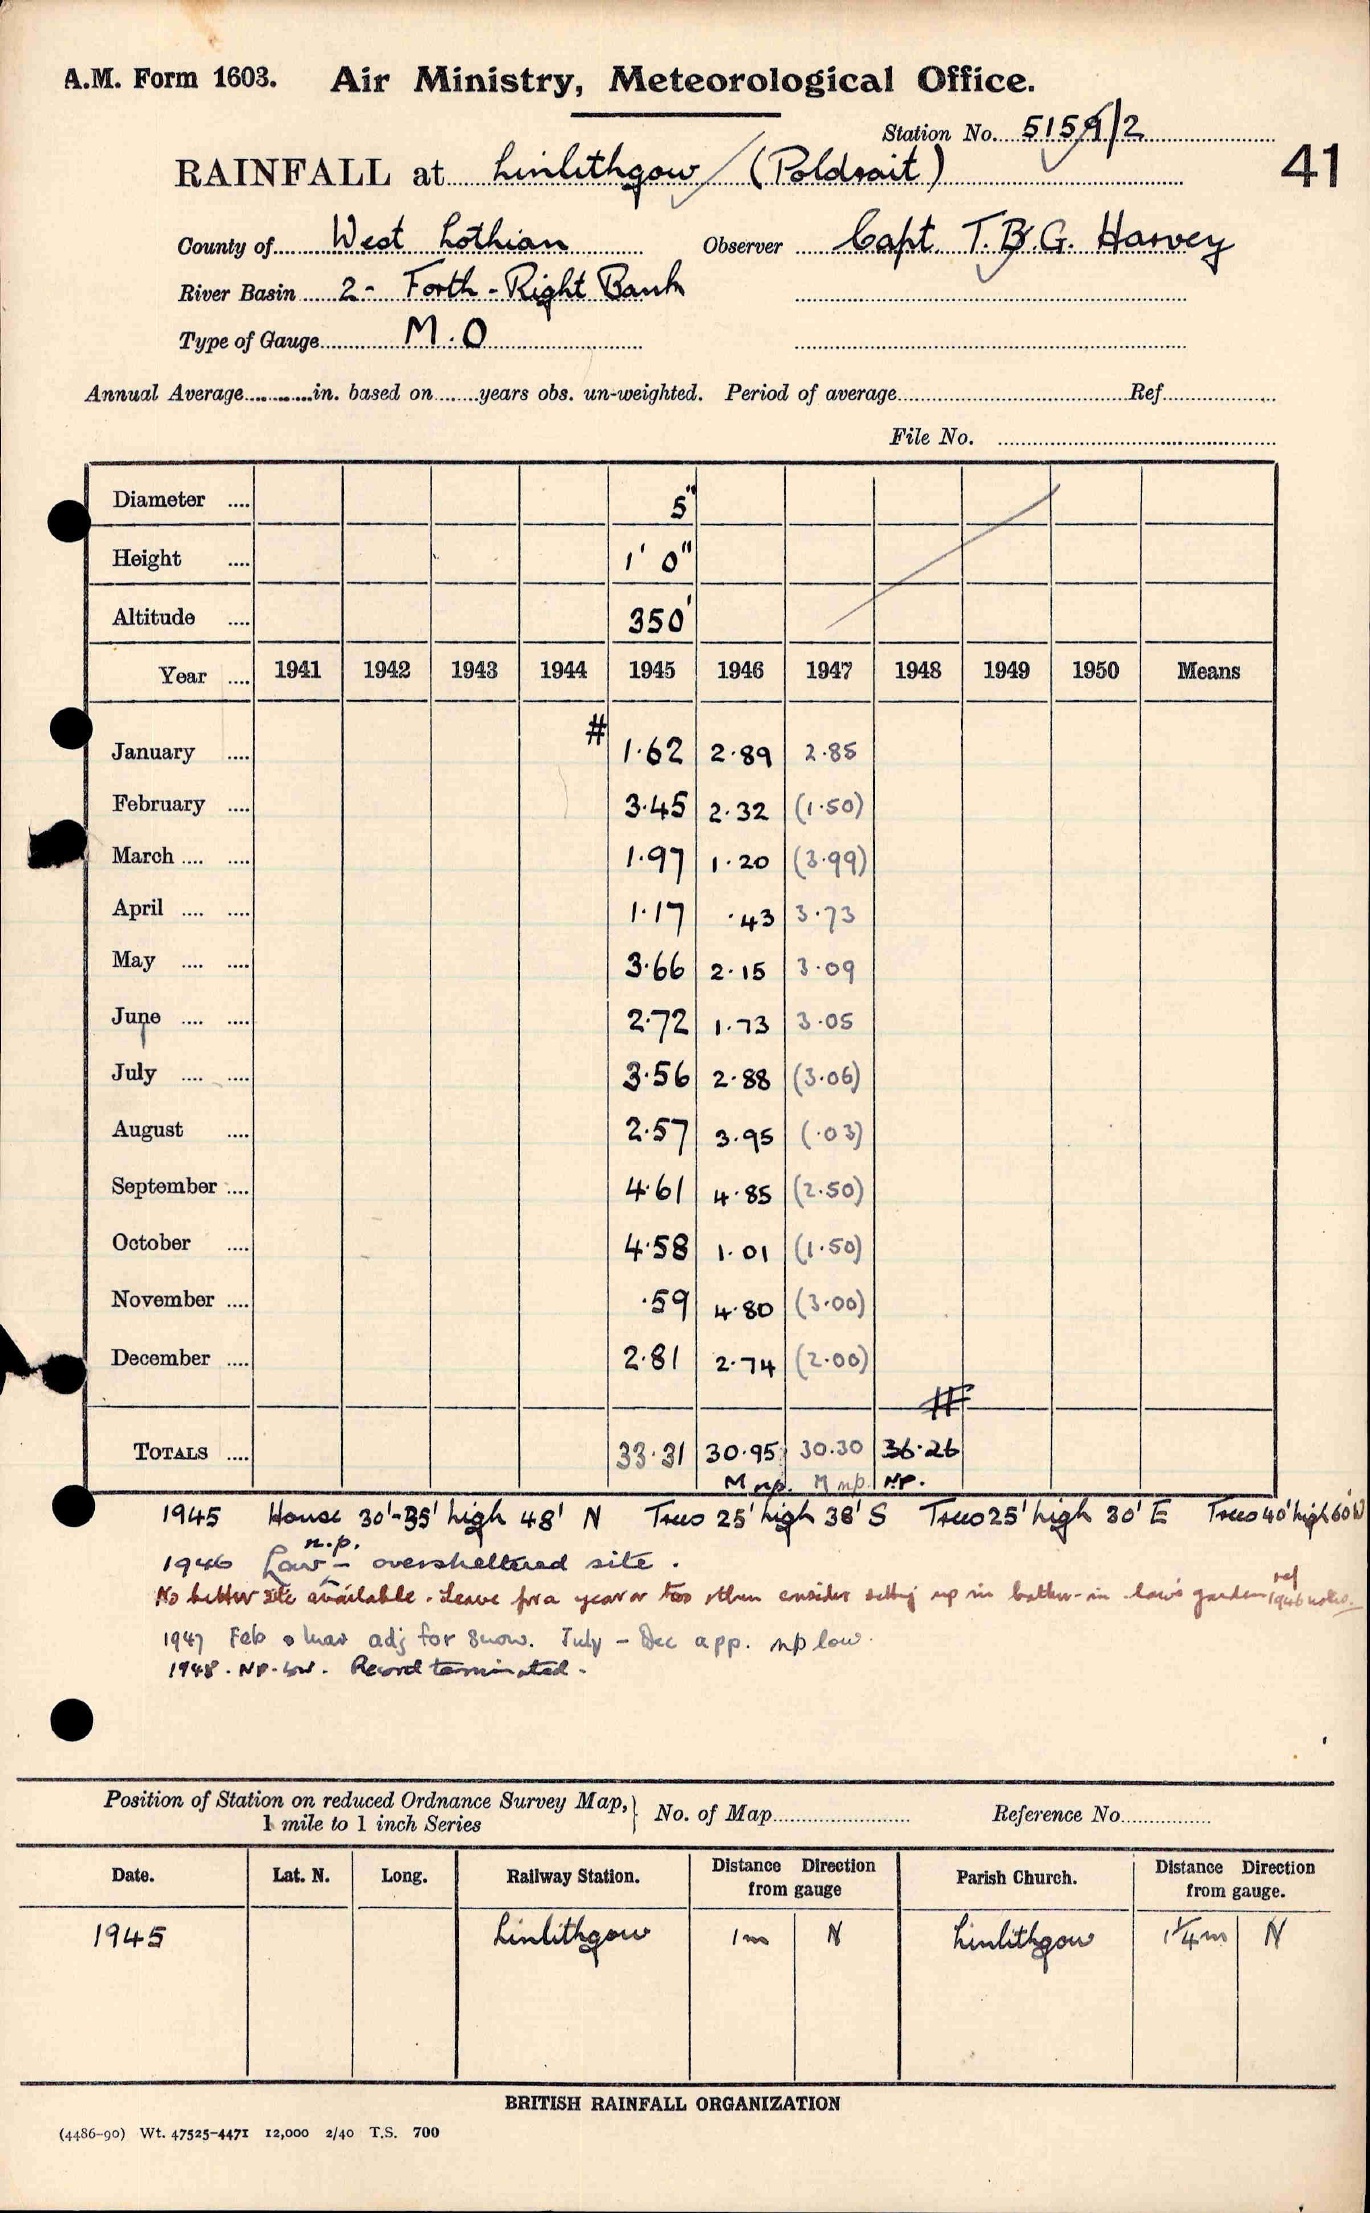 A.M. Form 1603. Air Ministry, Meteorological Office.
Station No. 5159/2
41
RAINFALL at Linlithgow (Poldrait)
County of West Lothian Observer Capt. T.B.G. Harvey
River Basin 2- Forth - Right Bank
Type of Gauge M.O
Annual Average in. based on years obs. un-weighted. Period of average Ref
File No.
Diameter 5"
Height 1' 0"
Altitude 350'
Year 1941 1942 1943 1944 1945 1946 1947 1948 1949 1950 Means
#
January 1.62 2.89 2.85
February 3.45 2.32 (1.50)
March 1.97 1.20 (3.99)
April 1.17 .43 3.73
May 3.66 2.15 3.09
June 2.72 1.73 3.05
July 3.56 2.88 (3.06)
August 2.57 3.95 (.03)
September 4.61 4.85 (2.50)
October 4.58 1.01 (1.50)
November .59 4.80 (3.00)
December 2.81 2.74 (2.00)
#
TOTALS 33.31 30.95 30.30 36.26
M np. M np. NP.
1945 House 30'-35' high 48' N Trees 25' high 38' S Trees 25' high 30' E Trees 40' high 60' W
n.p.
1946 Low - oversheltered site.
No better site available. Leave for a year or too then consider setting up in in law's garden ref 1946 notes.
1947 Feb & Mar adj for Snow. July - Dec app. np low.
1948. NP. low. Record terminated.
Position of Station on reduced Ordnance Survey Map, No. of Map Reference No.
1 mile to 1 inch Series
Date. Lat. N. Long. Railway Station. Distance Direction from gauge Parish Church. Distance Direction from gauge.
1945 Linlithgow 1m N Linlithgow 1¼m N
BRITISH RAINFALL ORGANIZATION
(4486-90) Wt. 47525-4471 12,000 2/40 T.S. 700